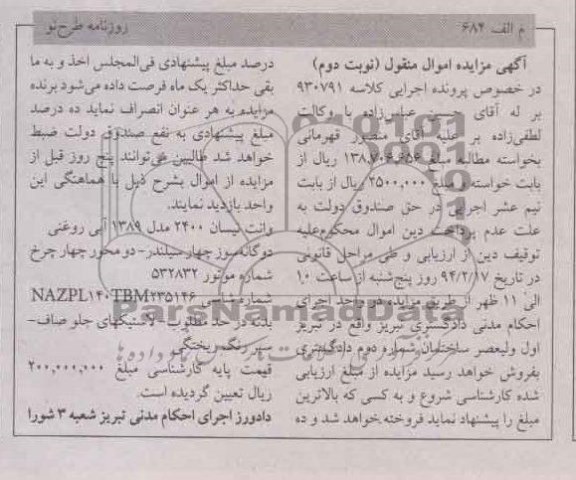 م الف ۶۸۴
روزنامه طرح نو
آگهی مزایده اموال منقول (نوبت دوم)
در خصوص پرونده اجرایی کلاسه ۹۳۰۷۹۱
بر له آقای حسین عباس‌زاده با وکالت
لطفی‌زاده بر علیه آقای منصور قهرمانی
بخواسته مطالبه مبلغ ۱۳۸,۷۰۶,۶۵۶ ریال از
بابت خواسته و مبلغ ۲۵۰۰,۰۰۰ ریال از بابت
نیم عشر اجرایی در حق صندوق دولت به
علت عدم پرداخت دین اموال محکوم‌علیه
توقیف دین از ارزیابی و طی مراحل قانونی
در تاریخ ۹۴/۲/۱۷ روز پنج‌شنبه از ساعت ۱۰
الی ۱۱ ظهر از طریق مزایده در واحد اجرای
احکام مدنی دادگستری تبریز واقع در تبریز
اول ولیعصر ساختمان شماره دوم دادگستری
بفروش خواهد رسید مزایده از مبلغ ارزیابی
شده کارشناسی شروع و به کسی که بالاترین
مبلغ را پیشنهاد نماید فروخته خواهد شد و ده
درصد مبلغ پیشنهادی فی‌المجلس اخذ و به ما
بقی حداکثر یک ماه فرصت داده می‌شود برنده
مزایده به هر عنوان انصراف نماید ده درصد
مبلغ پیشنهادی به نفع صندوق دولت ضبط
خواهد شد طالبین می‌توانند پنج روز قبل از
مزایده از اموال بشرح ذیل با هماهنگی این
واحد بازدید نمایند.
وانت نیسان ۲۴۰۰ مدل ۱۳۸۹ آبی روغنی
دوگانه‌سوز چهار سیلندر-دو محور چهار چرخ
شماره موتور ۵۳۲۸۳۲
شماره شاسی NAZPL۱۴۰TBM۲۳۵۱۴۶
بدنه در حد مطلوب-لاستیکهای جلو صاف-
سپر رنگ ریختگی
قیمت پایه کارشناسی مبلغ ۲۰۰,۰۰۰,۰۰۰
ریال تعیین گردیده است.
دادورز اجرای احکام مدنی تبریز شعبه ۳ شورا
ParsNamadData